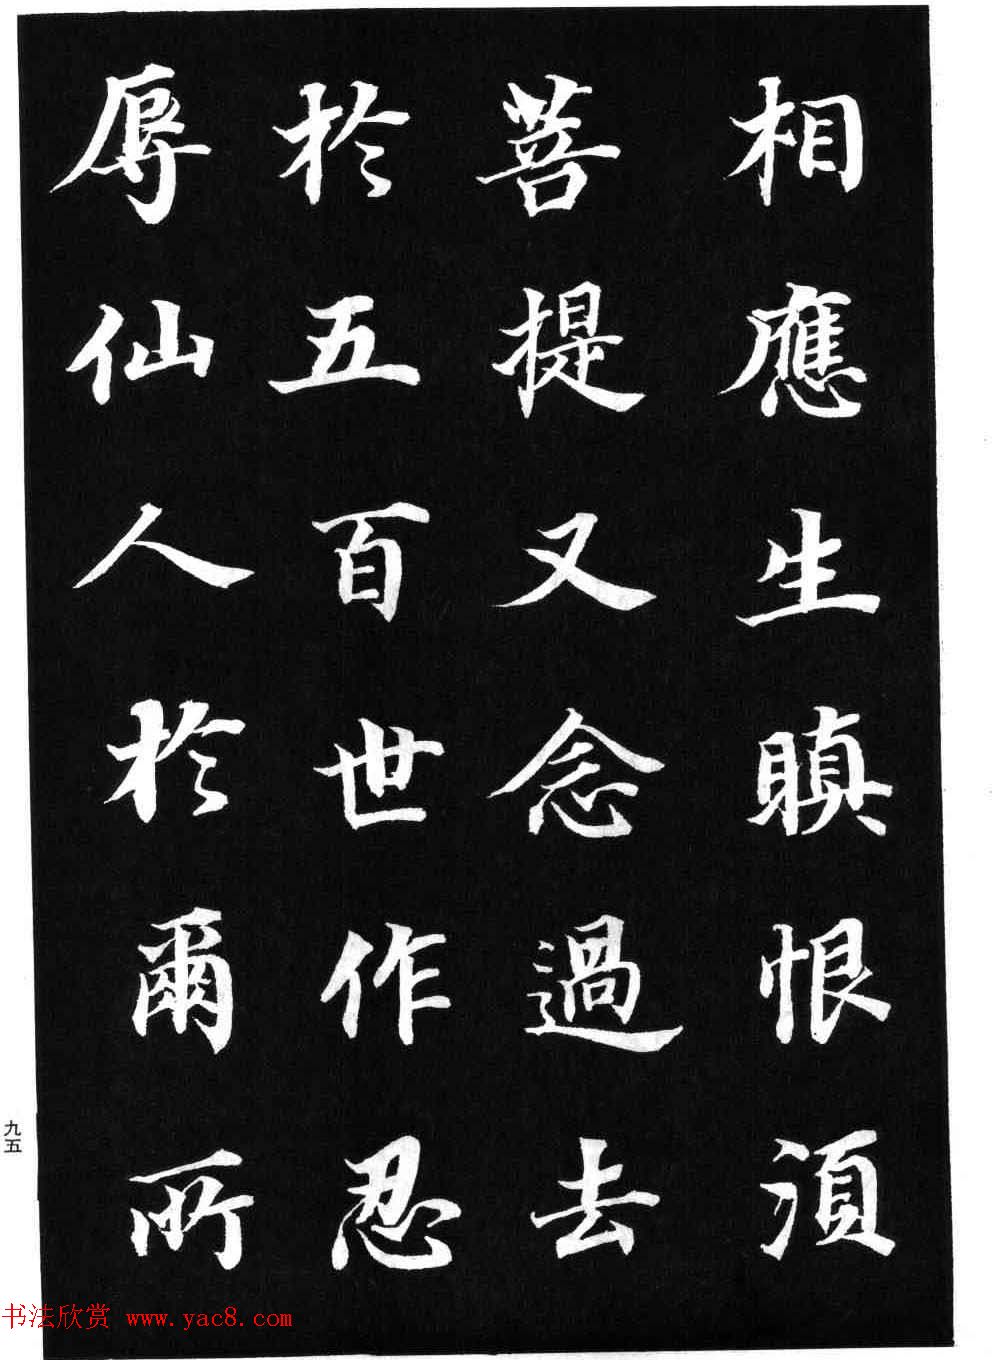 相應生瞋恨須
菩提又念過去
於五百世作忍
辱仙人於爾所
九五
书法欣赏 www.yac8.com